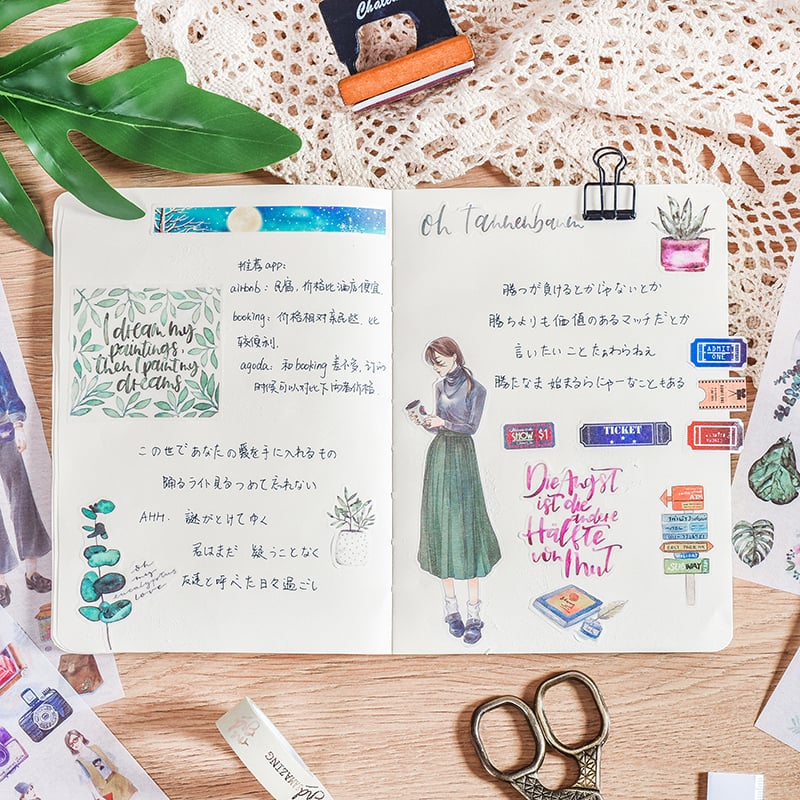 Chate
oh Tannenbaum
推荐app:
airbnb: 民宿,价格比酒店便宜.
booking: 价格相对亲民些,比
较便利.
agoda: 和booking差不多,订的
时候可以对比下两者价格.
I dream my
paintings,
then I paint my
dreams
この世であなたの愛を手に入れるもの
踊るライト見るつめて忘れない
AHH. 謎がとけてゆく
君はまだ 疑うことなく
友達と呼べた日々過ごし
oh
my
eucalyptus
love
勝つが負けるとかじゃないとか
勝ちよりも価値のあるマッチだとか
言いたいことたぁわらねえ
勝たなま 始まるらにゃーなこともある
ADMIT
ONE
SHOW $1
TICKET
Die Angst
ist die
andere
Hälfte
von Mut
SUBWAY
AMAZING